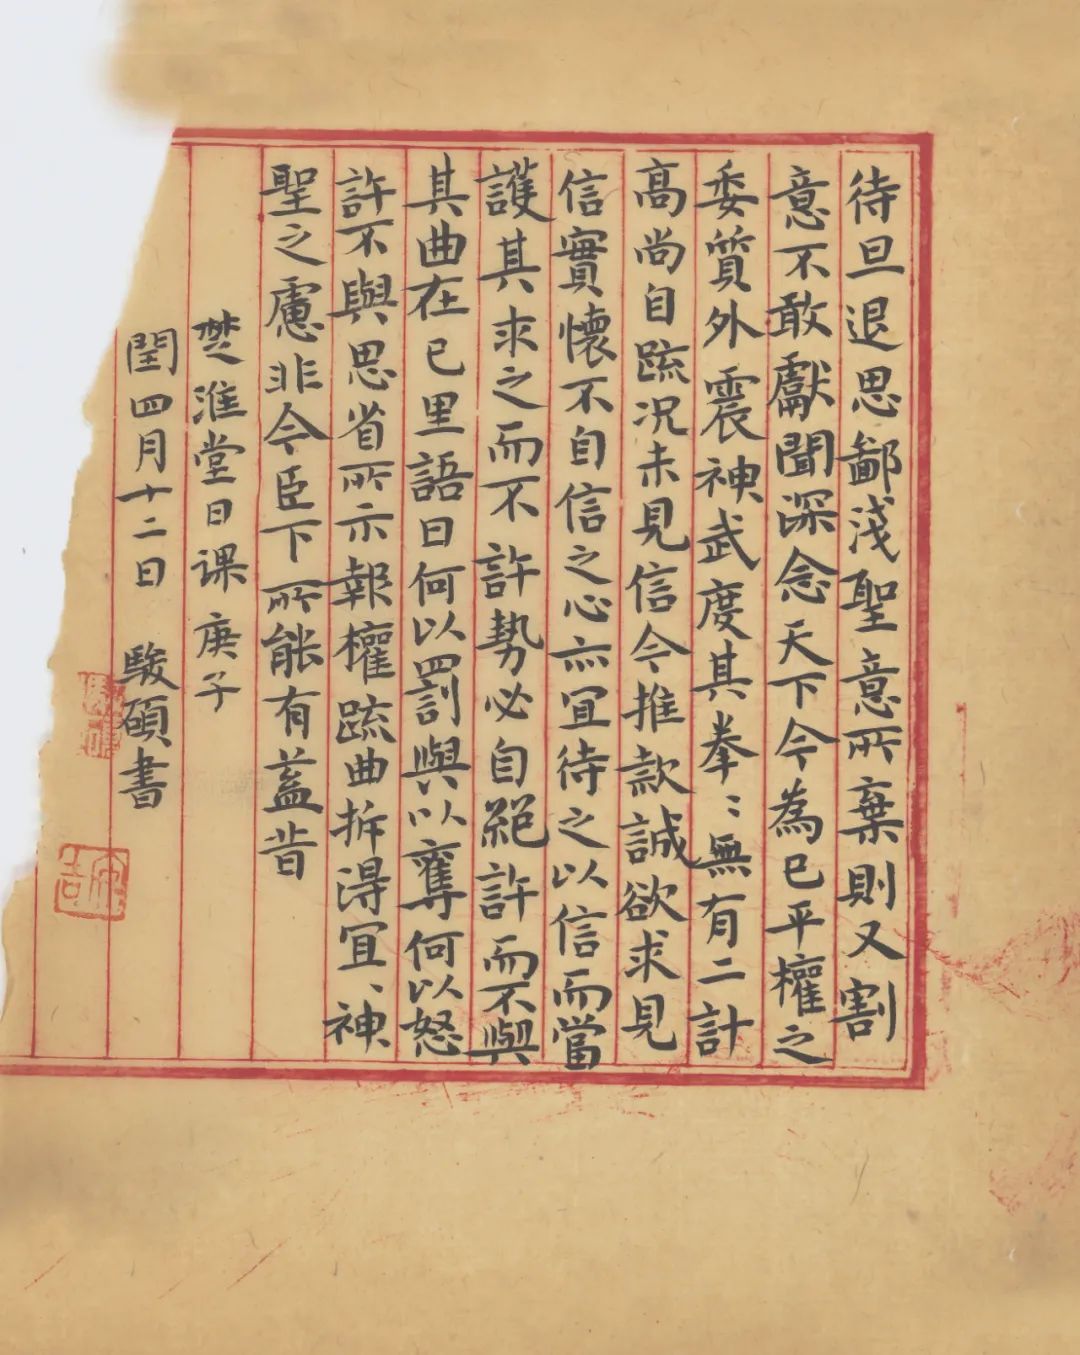 待旦退思鄙淺聖意所棄則又割
意不敢獻聞深念天下今為已平權之
委質外震神武度其拳〻無有二計
高尚自疏况未見信今推款誠欲求見
信實懷不自信之心亦宜待之以信而當
護其求之而不許勢必自絕許而不與
其曲在已里語曰何以罰與以奪何以怒
許不與思省所示報權疏曲折得宜、神
聖之慮非今臣下所能有蓋昔
楚淮堂日课庚子
閏四月十二日 駿碩書